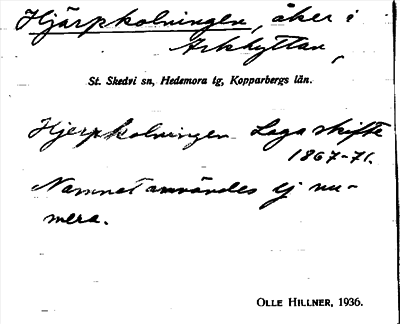 Hjärpkolningen, åker i
Arkhyttan,
St. Skedvi sn, Hedemora tg, Kopparbergs län.
Hjerpkolningen Laga skifte
1867-71.
Namnet användes ej nu-
mera.
OLLE HILLNER, 1936.